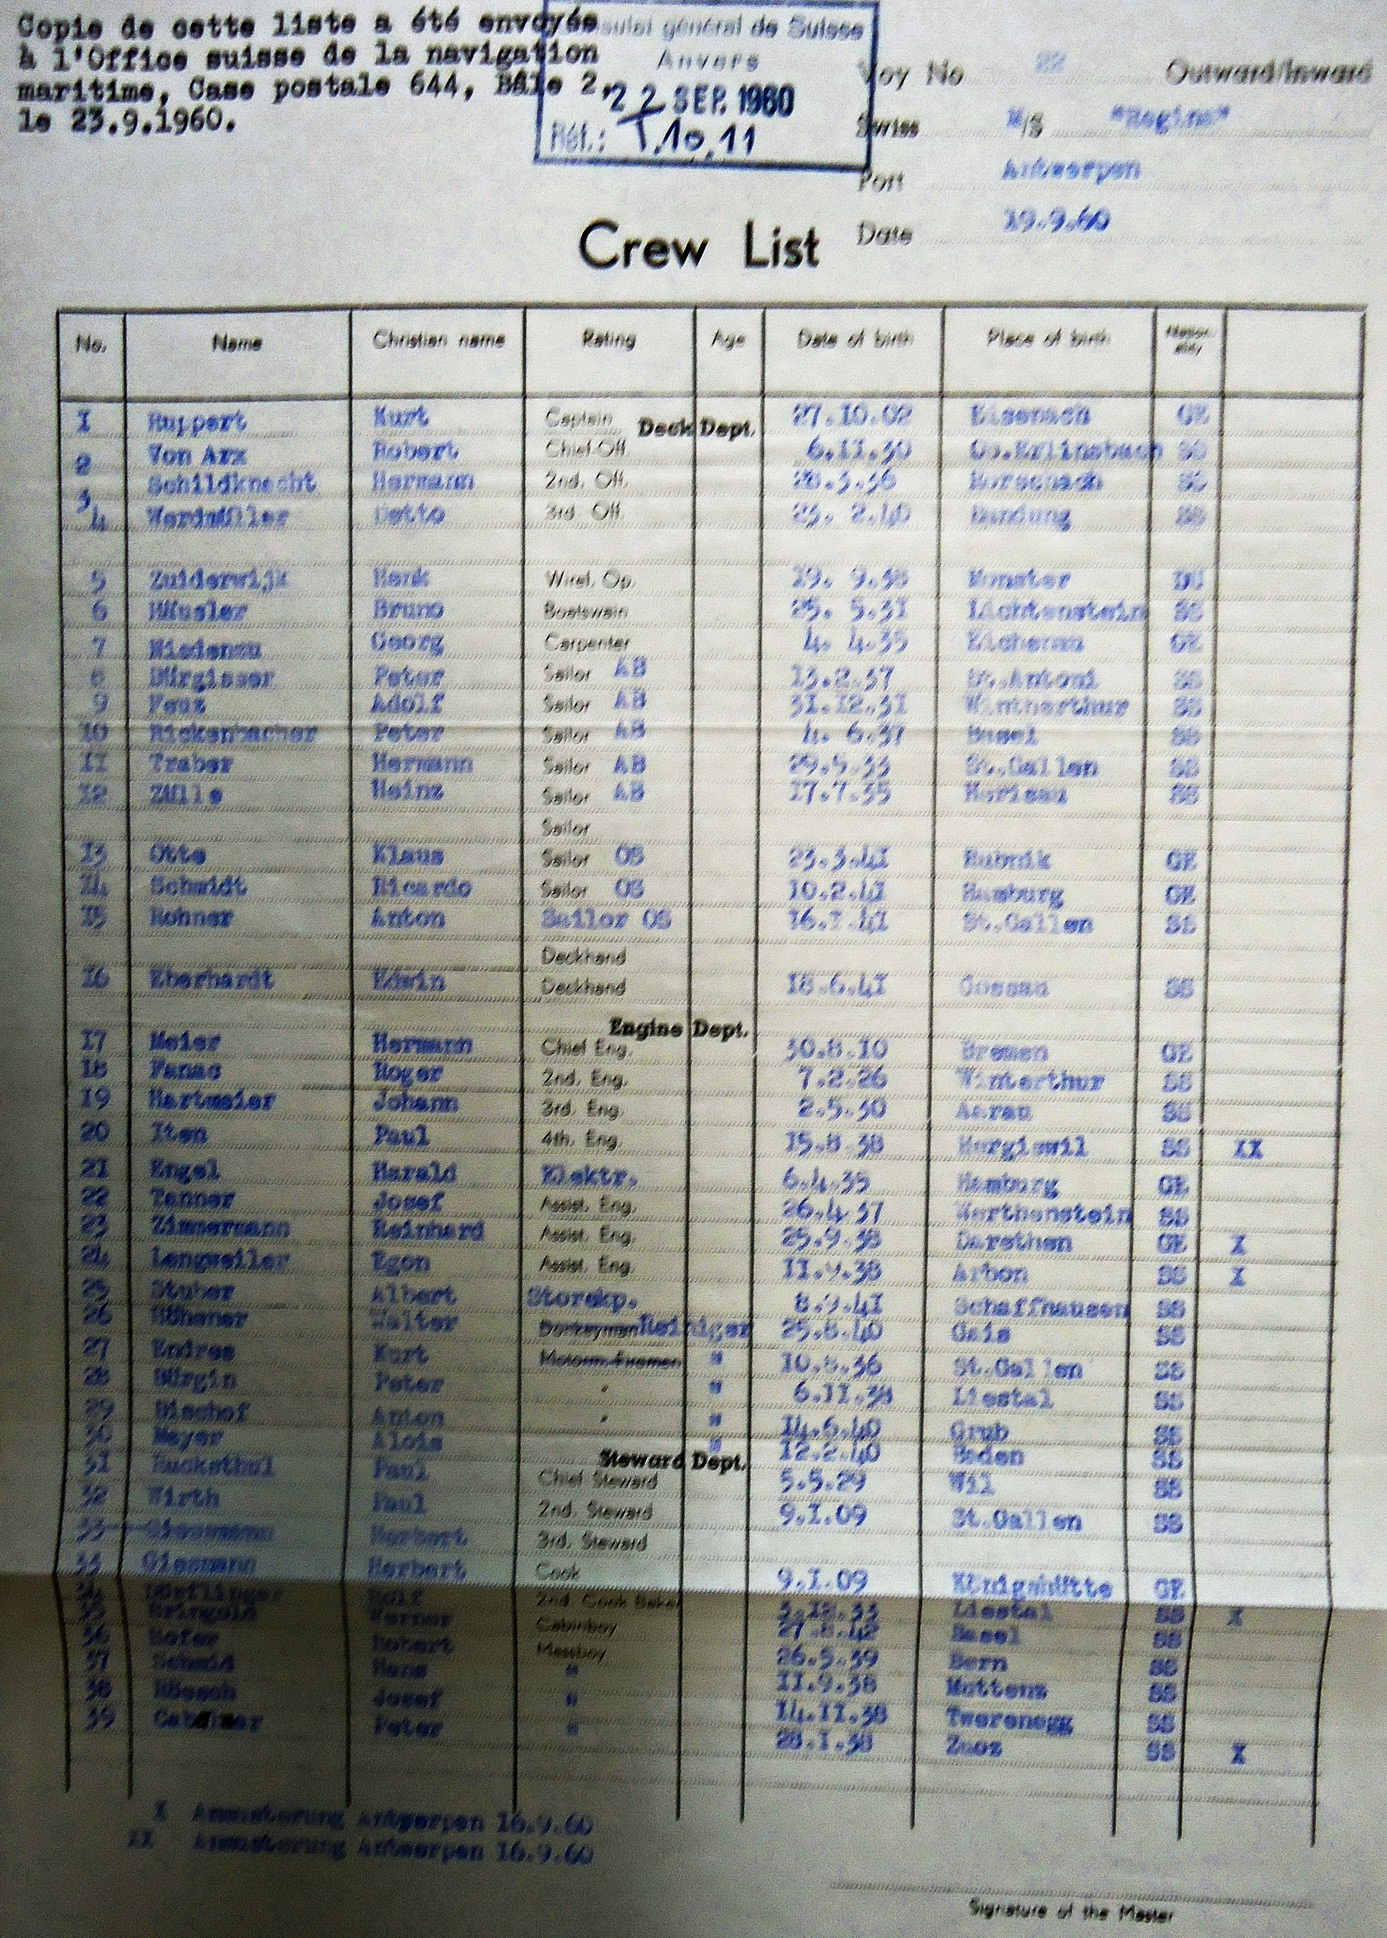 Copie de cette liste a été envoyée
à l'Office suisse de la navigation
maritime, Case postale 644, Bâle 2,
le 23.9.1960.
général de Suisse
Anvers
22 SEP. 1960
Réf.: T.10.11
Voy No 22 Outward/Inward
Swiss M/S "Regina"
Port Antwerpen
Date 19.9.60
Crew List
No. Name Christian name Rating Age Date of birth Place of birth
Deck Dept.
1 Ruppert Kurt Captain 27.10.02 Eisenach GE
2 Von Arx Robert Chief Off. 6.11.30 SS
3 Schildknecht Hermann 2nd. Off. 28.3.36 Rorschach SS
4 Werdmüller 3rd Off. 23. 2.40 Bandung SS
5 Zuiderwijk Henk Wirel. Op. 19. 9.38 Monster DU
6 Häusler Bruno Boatswain 25. 5.31 Lichtenstein SS
7 Georg Carpenter 4. 4.35 Eichenau GE
8 Bürgisser Peter Sailor AB 13.2.37 St.Antoni SS
9 Adolf Sailor AB 31.12.31 Wintherthur SS
10 Rickenbacher Peter Sailor AB 4. 6.37 Basel SS
11 Traber Hermann Sailor AB 29.5.33 St.Gallen SS
12 Zülle Heinz Sailor AB 17.7.35 Herisau SS
Sailor
13 Otto Klaus Sailor OS 23.3.41 Rubnik GE
14 Schmidt Ricardo Sailor OS 10.2.41 Hamburg GE
15 Rohner Anton Sailor OS 16.1.41 St.Gallen SS
Deckhand
16 Eberhardt Edwin Deckhand 18.6.41 Gossau SS
Engine Dept.
17 Meier Hermann Chief Eng. 30.8.10 Bremen GE
18 Fanac Roger 2nd. Eng. 7.2.26 Winterthur SS
19 Hartmeier Johann 3rd. Eng. 2.5.30 Aarau SS
20 Iten Paul 4th. Eng. 15.8.38 Hergiswil SS II
21 Engel Harald Elektr. 6.4.35 Hamburg GE
22 Tanner Josef Assist. Eng. 26.4.37 Werthenstein SS
23 Zimmermann Reinhard Assist. Eng. 25.9.38 Darethen GE I
24 Lengweiler Egon Assist. Eng. 11.9.38 Arbon SS I
25 Stuber Albert Storekp. 8.9.41 Schaffhausen SS
26 Hühener Walter Donkeyman Reiniger 25.8.40 Gais SS
27 Endres Kurt Motorm. Firemen " 10.8.36 St.Gallen SS
28 Bürgin Peter " " 6.11.38 Liestal SS
29 Bischof Anton " " 14.6.40 Grub SS
30 Meyer Alois " 12.2.40 Baden SS
Steward Dept.
31 Ruckstuhl Paul Chief Steward 5.5.29 Wil SS
32 Wirth Paul 2nd. Steward 9.1.09 St.Gallen SS
33 Giesmann Herbert 3rd. Steward
33 Giesmann Herbert Cook 9.1.09 Königshütte GE
34 Dörflinger Rolf 2nd. Cook Baker 3.12.33 Liestal SS I
35 Bringold Werner Cabinboy 27.8.42 Basel SS
36 Hofer Robert Messboy 26.5.39 Bern SS
37 Schmid Hans " 11.9.38 Muttenz SS
38 Rüesch Josef " 14.11.38 Twerenegg SS
39 Peter " 28.1.38 Zuoz SS I
I Anmusterung Antwerpen 16.9.60
II Anmusterung Antwerpen 16.9.60
Signature of the Master